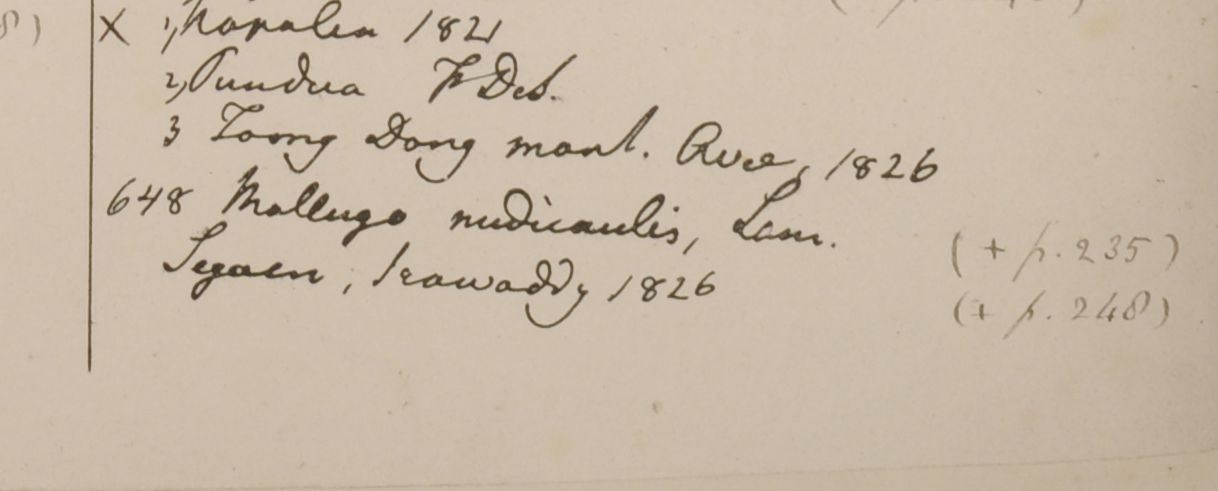 8)
X 1, Napalia 1821
2, Pundua F Des.
3 Toong Dong mont. Avae, 1826
648 Mollugo nudicaulis, Lam.
Segaen, Irawaddy 1826
(+ p. 235)
(+ p. 248)